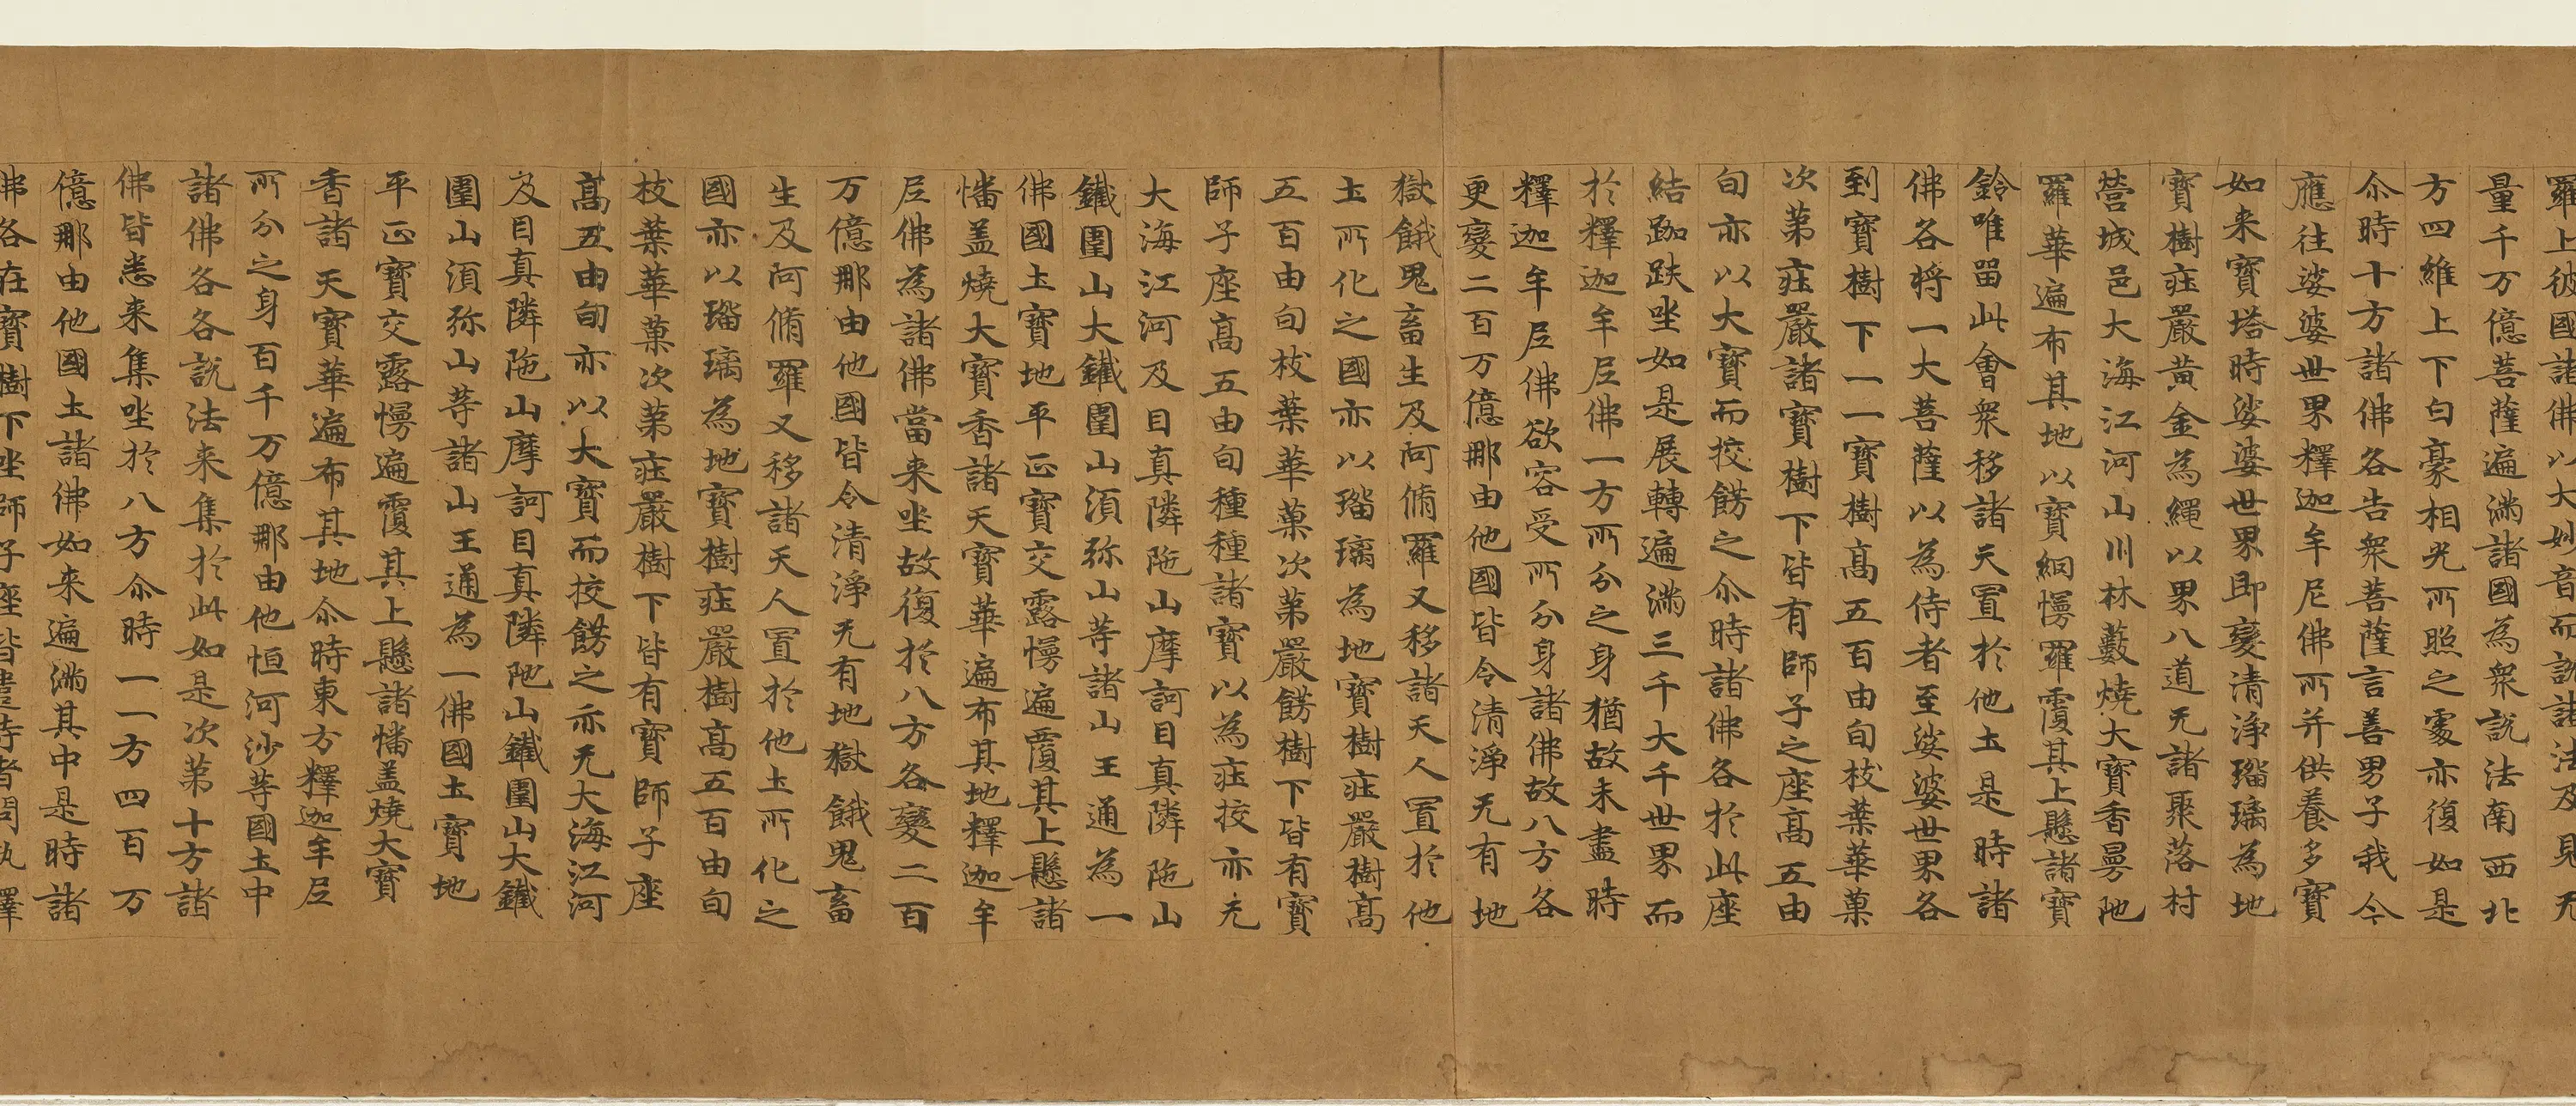 羅上彼國諸佛以大妙音而說諸法及見无
量千万億菩薩遍滿諸國為衆說法南西北
方四維上下白豪相光所照之處亦復如是
尒時十方諸佛各告衆菩薩言善男子我今
應往娑婆世界釋迦牟尼佛所并供養多寶
如来寶塔時娑婆世界即變清淨瑠璃為地
寶樹莊嚴黃金為繩以界八道无諸聚落村
營城邑大海江河山川林藪燒大寶香曼陁
羅華遍布其地以寶網幔羅覆其上懸諸寶
鈴唯留此會衆移諸天置於他土是時諸
佛各將一大菩薩以為侍者至娑婆世界各
到寶樹下一一寶樹高五百由旬枝葉華菓
次第莊嚴諸寶樹下皆有師子之座高五由
旬亦以大寶而挍餝之尒時諸佛各於此座
結跏趺坐如是展轉遍滿三千大千世界而
於釋迦牟尼佛一方所分之身猶故未盡時
釋迦牟尼佛欲容受所分身諸佛故八方各
更變二百万億那由他國皆令清淨无有地
獄餓鬼畜生及阿脩羅又移諸天人置於他
土所化之國亦以瑠璃為地寶樹莊嚴樹高
五百由旬枝葉華菓次第嚴餝樹下皆有寶
師子座高五由旬種種諸寶以為莊挍亦无
大海江河及目真隣陁山摩訶目真隣陁山
鐵圍山大鐵圍山須弥山等諸山王通為一
佛國土寶地平正寶交露幔遍覆其上懸諸
幡盖燒大寶香諸天寶華遍布其地釋迦牟
尼佛為諸佛當来坐故復於八方各變二百
万億那由他國皆令清淨无有地獄餓鬼畜
生及阿脩羅又移諸天人置於他土所化之
國亦以瑠璃為地寶樹莊嚴樹高五百由旬
枝葉華菓次第莊嚴樹下皆有寶師子座
高五由旬亦以大寶而挍餝之亦无大海江河
及目真隣陁山摩訶目真隣陁山鐵圍山大鐵
圍山須弥山等諸山王通為一佛國土寶地
平正寶交露幔遍覆其上懸諸幡盖燒大寶
香諸天寶華遍布其地尒時東方釋迦牟尼
所分之身百千万億那由他恒河沙等國土中
諸佛各各說法来集於此如是次第十方諸
佛皆悉来集坐於八方尒時一一方四百万
億那由他國土諸佛如来遍滿其中是時諸
佛各在寶樹下坐師子座皆遣侍者問訊釋